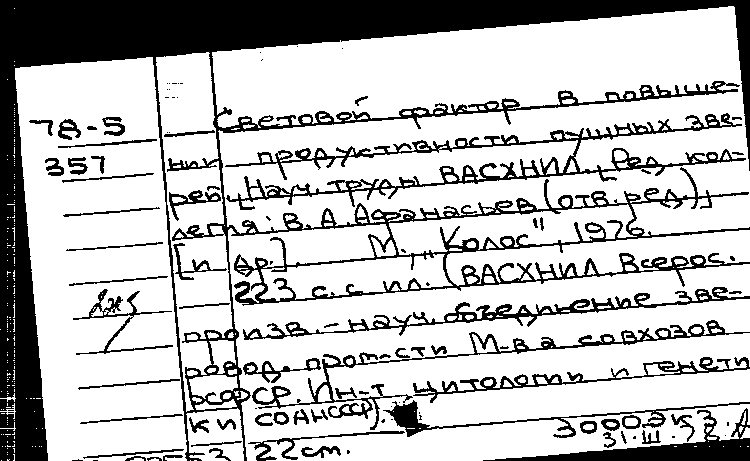 78-5 Световой фактор в повыше-
357 нии продуктивности пушных зве-
рей. [Науч. труды ВАСХНИЛ. Ред. кол-
легия: В. А. Афанасьев (отв. ред.)
[и др.]. М., „Колос", 1976.
223 с. с ил. (ВАСХНИЛ. Всерос.
произв.-науч. объединение зве-
ровод. пром-сти М-ва совхозов
РСФСР. Ин-т цитологии и генети
ки СОАНСССР).
3000 экз
22 cm. 31.III.78.